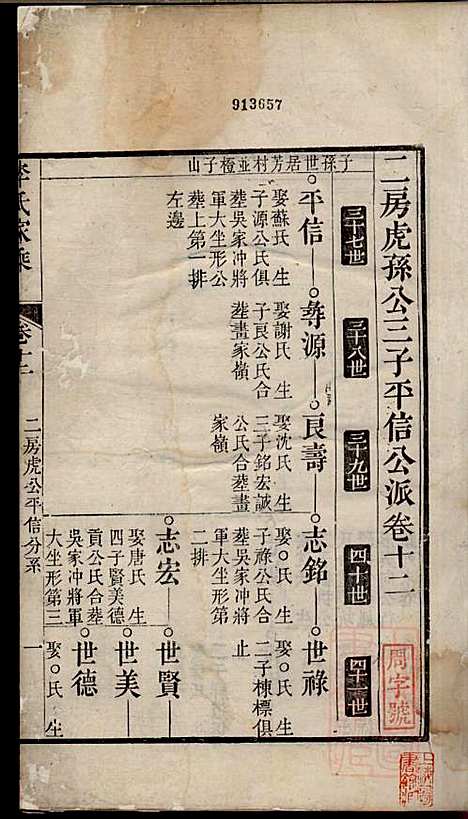 913657
二房虎孫公三子平信公派卷十二
周字號
三十七世
三十八世
三十九世
四十世
四十一世
子孫世居芳村並橙子山
平信
娶蘇氏 生
子源公氏俱
葬吳家冲將
軍大坐形公
葬上第一排
左邊
彝源
娶謝氏 生
子良公氏合
葬畫家嶺
良壽
娶沈氏 生
三子銘宏誠
公氏合葬畫
家嶺
志銘
娶○氏 生
子祿公氏合
葬吳家冲將
軍大坐形第
二排
世祿
娶○氏 生
二子棟標俱
止
志宏
娶唐氏 生
四子賢美德
貢公氏合葬
吳家冲將軍
大坐形第三
世賢
世美
世德
娶○氏 生
李氏家乘
卷十二
二房虎公平信分系
一